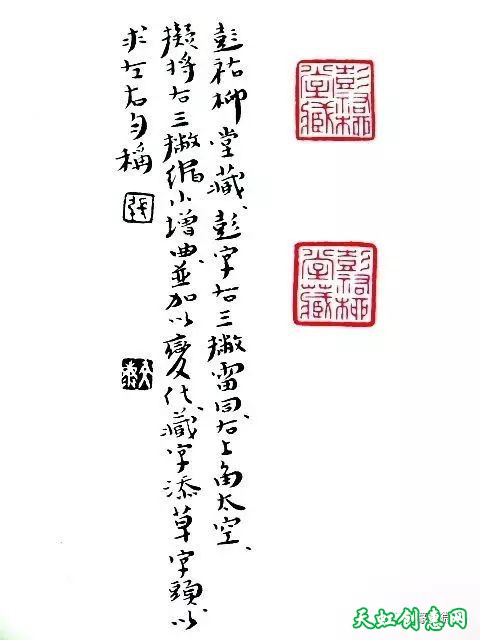 彭祐柳堂藏、彭字右三撇雷同、右上角太空、
擬將右三撇縮小增曲、並加以變化、藏字添草字頭以
求左右勻稱
張
彭祐柳堂藏
彭祐柳堂藏
天虹创意网